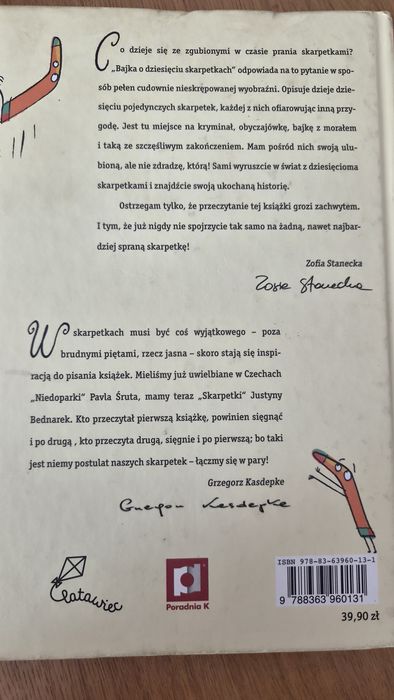 Co dzieje się ze zgubionymi w czasie prania skarpetkami?
„Bajka o dziesięciu skarpetkach” odpowiada na to pytanie w spo-
sób pełen cudownie nieskrępowanej wyobraźni. Opisuje dzieje dzie-
sięciu pojedynczych skarpetek, każdej z nich ofiarowując inną przy-
godę. Jest tu miejsce na kryminał, obyczajówkę, bajkę z morałem
i taką ze szczęśliwym zakończeniem. Mam pośród nich swoją ulu-
bioną, ale nie zdradzę, którą! Sami wyruszcie w świat z dziesięcioma
skarpetkami i znajdźcie swoją ukochaną historię.
Ostrzegam tylko, że przeczytanie tej książki grozi zachwytem.
I tym, że już nigdy nie spojrzycie tak samo na żadną, nawet najbar-
dziej spraną skarpetkę!
Zofia Stanecka
Zosia Stanecka
W skarpetkach musi być coś wyjątkowego – poza
brudnymi piętami, rzecz jasna – skoro stają się inspi-
racją do pisania książek. Mieliśmy już uwielbiane w Czechach
„Niedoparki” Pavla Šruta, mamy teraz „Skarpetki” Justyny
Bednarek. Kto przeczytał pierwszą książkę, powinien sięgnąć
i po drugą , kto przeczyta drugą, sięgnie i po pierwszą; bo taki
jest niemy postulat naszych skarpetek – łączmy się w pary!
Grzegorz Kasdepke
Grzegorz Kasdepke
Latawiec
Poradnia K
ISBN 978-83-63960-13-1
9 788363 960131
39,90 zł